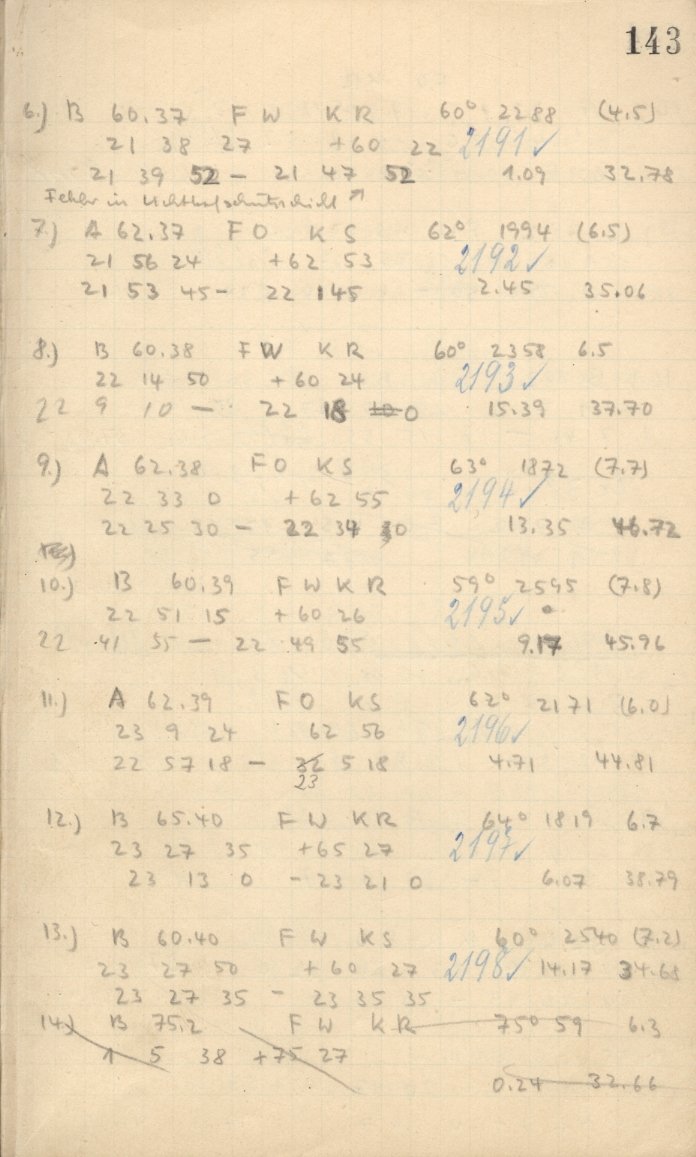 143
6.) B 60.37 F W K R 60° 2288 (4.5)
21 38 27 +60 22 2191 ✓
21 39 52 – 21 47 52 1.09 32.78
Fehler in Lichthofschutzschicht ↗
7.) A 62.37 F O K S 62° 1994 (6.5)
21 56 24 +62 53 2192 ✓
21 53 45 – 22 1 45 2.45 35.06
8.) B 60.38 F W K R 60° 2358 6.5
22 14 50 +60 24 2193 ✓
22 9 10 – 22 18 0 15.39 37.70
9.) A 62.38 F O K S 63° 1872 (7.7)
22 33 0 +62 55 2194 ✓
22 25 30 – 22 34 30 13.35 46.72
10.) B 60.39 F W K R 59° 2595 (7.8)
22 51 15 +60 26 2195 ✓
22 41 55 – 22 49 55 9.17 45.96
11.) A 62.39 F O K S 62° 2171 (6.0)
23 9 24 62 56 2196 ✓
22 57 18 – 22 5 18 4.71 44.81
23
12.) B 65.40 F W K R 64° 1819 6.7
23 27 35 +65 27 2197 ✓
23 13 0 – 23 21 0 6.07 38.79
13.) B 60.40 F W K S 60° 2540 (7.2)
23 27 50 +60 27 2198 ✓ 14.17 34.68
23 27 35 – 23 35 35
14.) B 75.2 F W K R 75° 59 6.3
1 5 38 +75 27
0.24 32.66